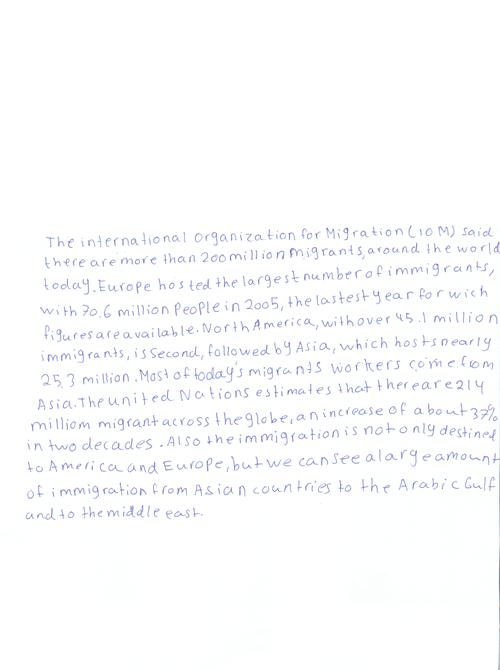 The international Organization for Migration (IOM) said
there are more than 200 million migrants, around the world
today. Europe hosted the largest number of immigrants,
with 70.6 million People in 2005, the lastest year for wich
figures are available. North America, with over 45.1 million
immigrants, is Second, followed by Asia, which hosts nearly
25.3 million. Most of today's migrants workers come from
Asia. The united Nations estimates that there are 214
milliom migrant across the globe, an increase of about 37%
in two decades. Also the immigration is not only destined
to America and Europe, but we can see a large amount
of immigration from Asian countries to the Arabic Gulf
and to the middle east.